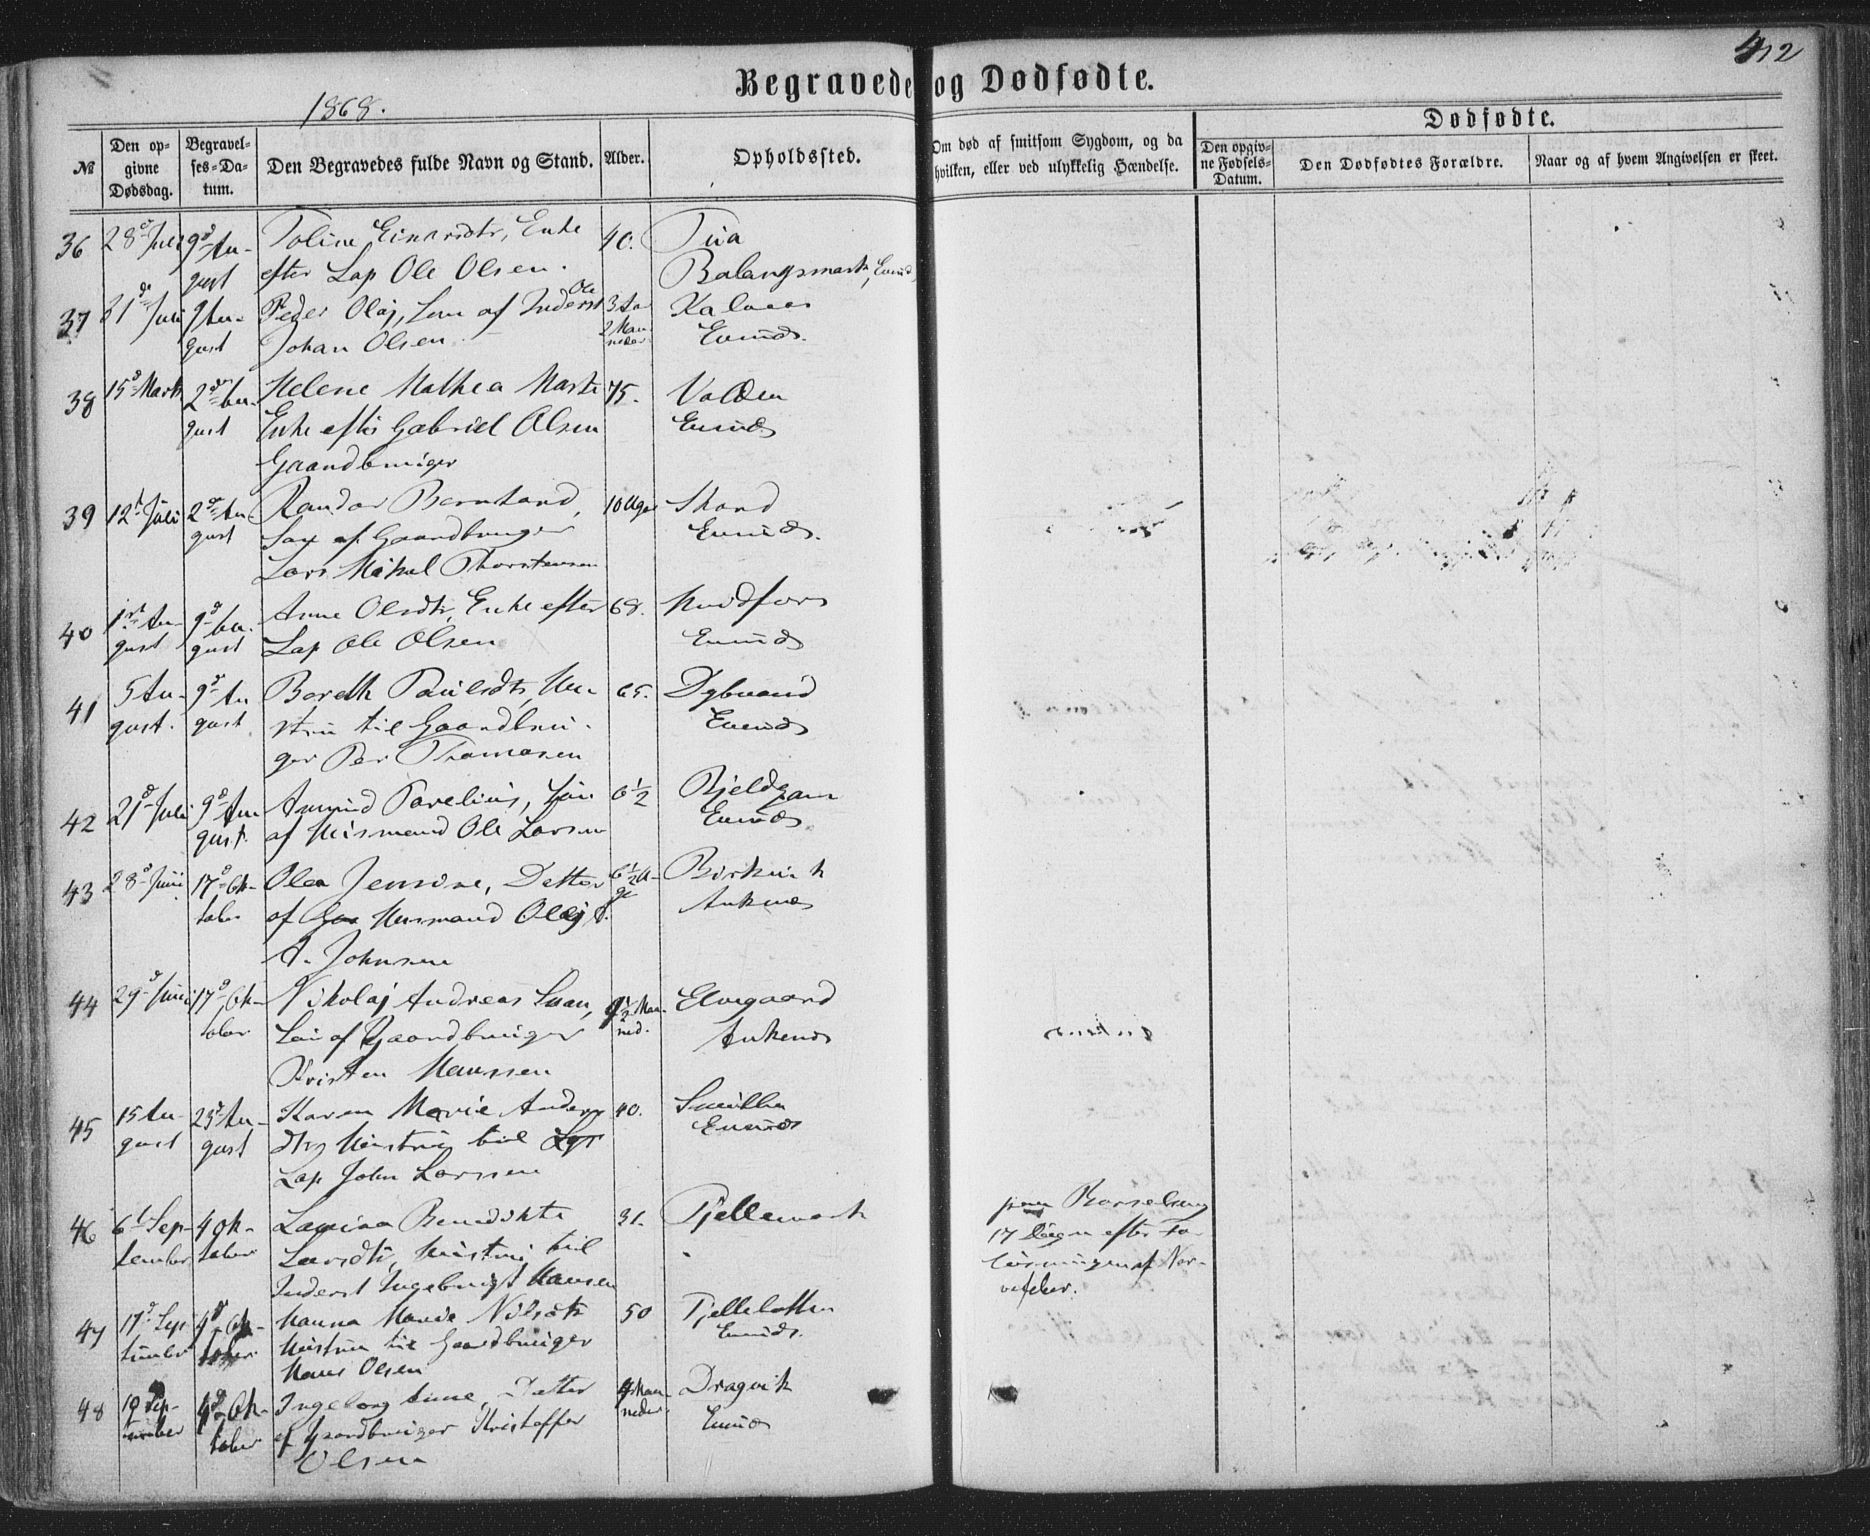 412
Begravede og Dødfødte.
1868.
№
Den op-
givne
Dødsdag.
Begravel-
ses-Da-
tum.
Den Begravedes fulde Navn og Stand.
Alder.
Opholdssted.
Om død af smitsom Sygdom, og da
hvilken, eller ved ulykkelig Hændelse.
Dødfødte.
Den opgiv-
ne Fødsels-
Datum.
Den Dødfødtes Forældre.
Naar og af hvem Angivelsen er skeet.
36 28d Juli 9d Au-
gust
Toline Einarsdtr, Enke
efter Lap Ole Olsen.
40.
Balangsmark, Evind
37 Juli 9 Au-
gust
Peder Olaj, Søn af Inderst Ole
Johan Olsen
3 Aar
2 Maa-
neder
Evends.
38 15d Marts 2den Au-
gust
Helene Mathea
Enke efter Gabriel Olsen
Gaardbruger
75.
Volden
Evends
39 12t Juli 2den Au-
gust
Randor Bernhard,
Søn af Gaardbruger
Lars Mikal Thorstensen
10 Uger
Skard
Evends.
40 1st Au-
gust
9d Au-
gust
Anne Olsdtr, Enke efter
Lap Ole Olsen
68.
Evends
41 5 Au-
gust.
9d Au
gust
Bereth Paulsdtr, Hu-
stru til Gaardbru-
ger Per Thomasen
65.
Dybvand
Evends
42 21d Juli 9d Au
gust.
Amund Parelius, Søn
af Husmand Ole Larsen
6½
Evends
43 28d Juni 17d Ok-
tober
Olea Jensine, Datter
af Gaa Husmand Olaj
A. Johnsen
6½ U-
ge
Birkvik
Ankenes
44 29d Juni 17d Ok-
tober
Nikolaj Andreas
Søn af Gaardbruger
Kristen Hanssen
Maa-
ned.
Elvegaard
Ankenes
45 15 Au-
gust
23d Au-
gust
Karen Marie Anders-
dtr, Hustru til
Lap John Larssen
40.
Evends
46 6t Sep-
tember
4 Ok-
tober
Lavina Benedikte
Larsdtr, Hustru til
Inderst Ingebrigt Hansen
31.
Fjellemark
paa Barselseng
17 Dage efter Fo-
løsningen af Ner-
vefeber.
47 17d Sep
tember
4d Ok-
tober
Hanna Marie Nilsdtr
Hustru til Gaardbruger
Hans Olsen
50
Evends.
48 19 Sep-
tember
4d Ok-
tober
Ingeborg Anne, Datter
af Gaardbruger Kristoffer
Olsen
4 Maa-
neder.
Dragvik
Evends